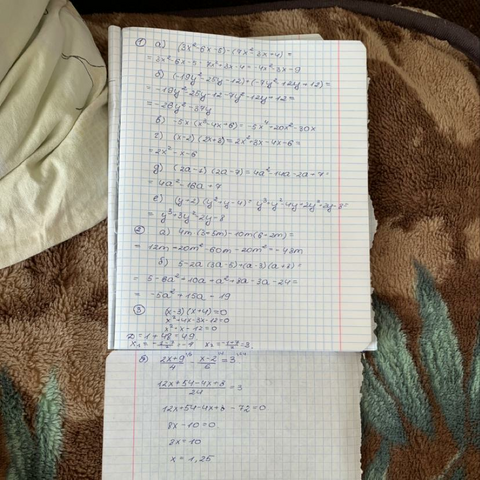 ① а) (3x²-6x-5)-(7x²-3x+4)=
=3x²-6x-5-7x²+3x-4=-4x²-3x-9
б) (-19y²-25y-12)+(-7y²-12y+12)=
=-19y²-25y-12-7y²-12y+12=
=-26y²-37y
в) -5x·(x³-4x+6)=-5x⁴+20x²-30x
г) (x-2)(2x+3)=2x²+3x-4x-6=
=2x²-x-6
д) (2a-1)(2a-7)=4a²-14a-2a+7=
=4a²-16a+7
е) (y+2)(y²+y-4)=y³+y²-4y+2y²+2y-8=
=y³+3y²-2y-8
② а) 4m(3+5m)-10m(6+2m)=
=12m+20m²-60m-20m²=-48m
б) 5-2a(3a-5)+(a-3)(a+8)=
=5-6a²+10a+a²+8a-3a-24=
=-5a²+15a-19
③ (x-3)(x+4)=0
x²+4x-3x-12=0
x²+x-12=0
D=1+48=49
④ (2x+9)/4 - (x-2)/6 = 3
(12x+54-4x+8)/24 = 3
12x+54-4x+8-72=0
8x-10=0
8x=10
x=1,25